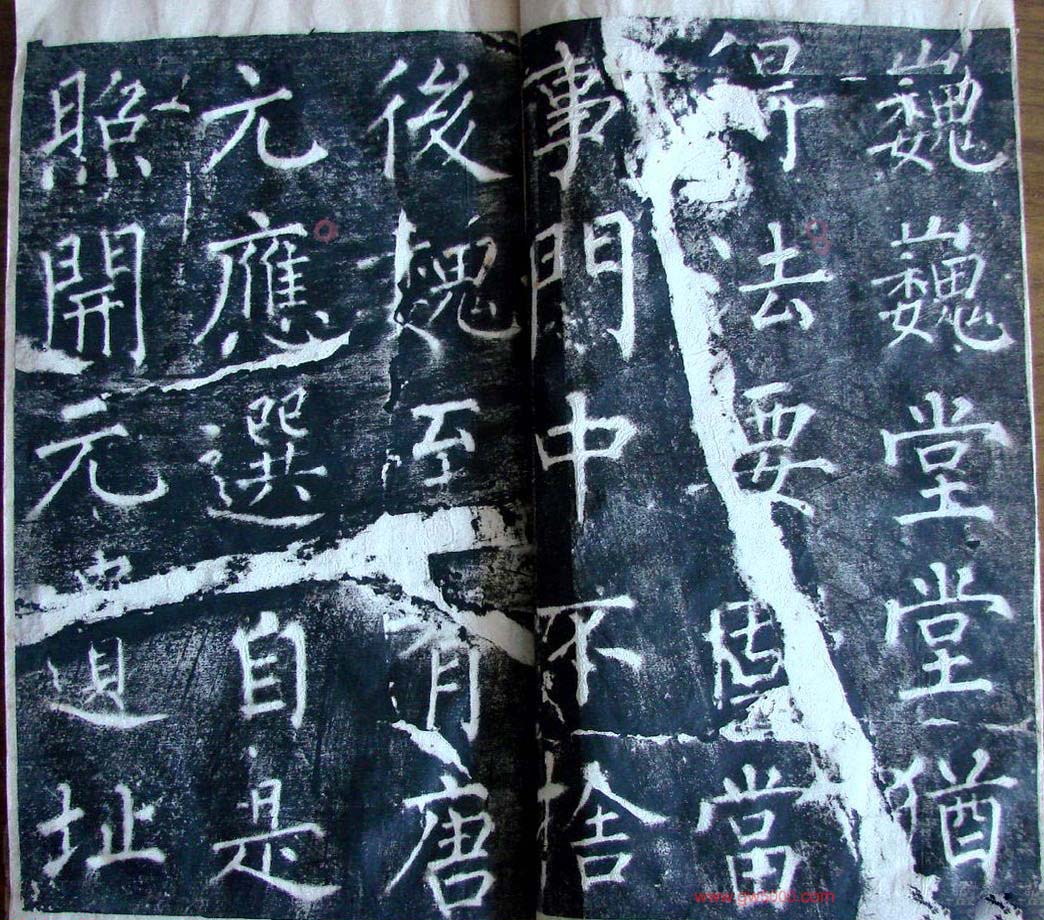 巍巍堂堂猶
得法要當
事門中不捨
後魏至有唐
元應選自是
照開元遺址